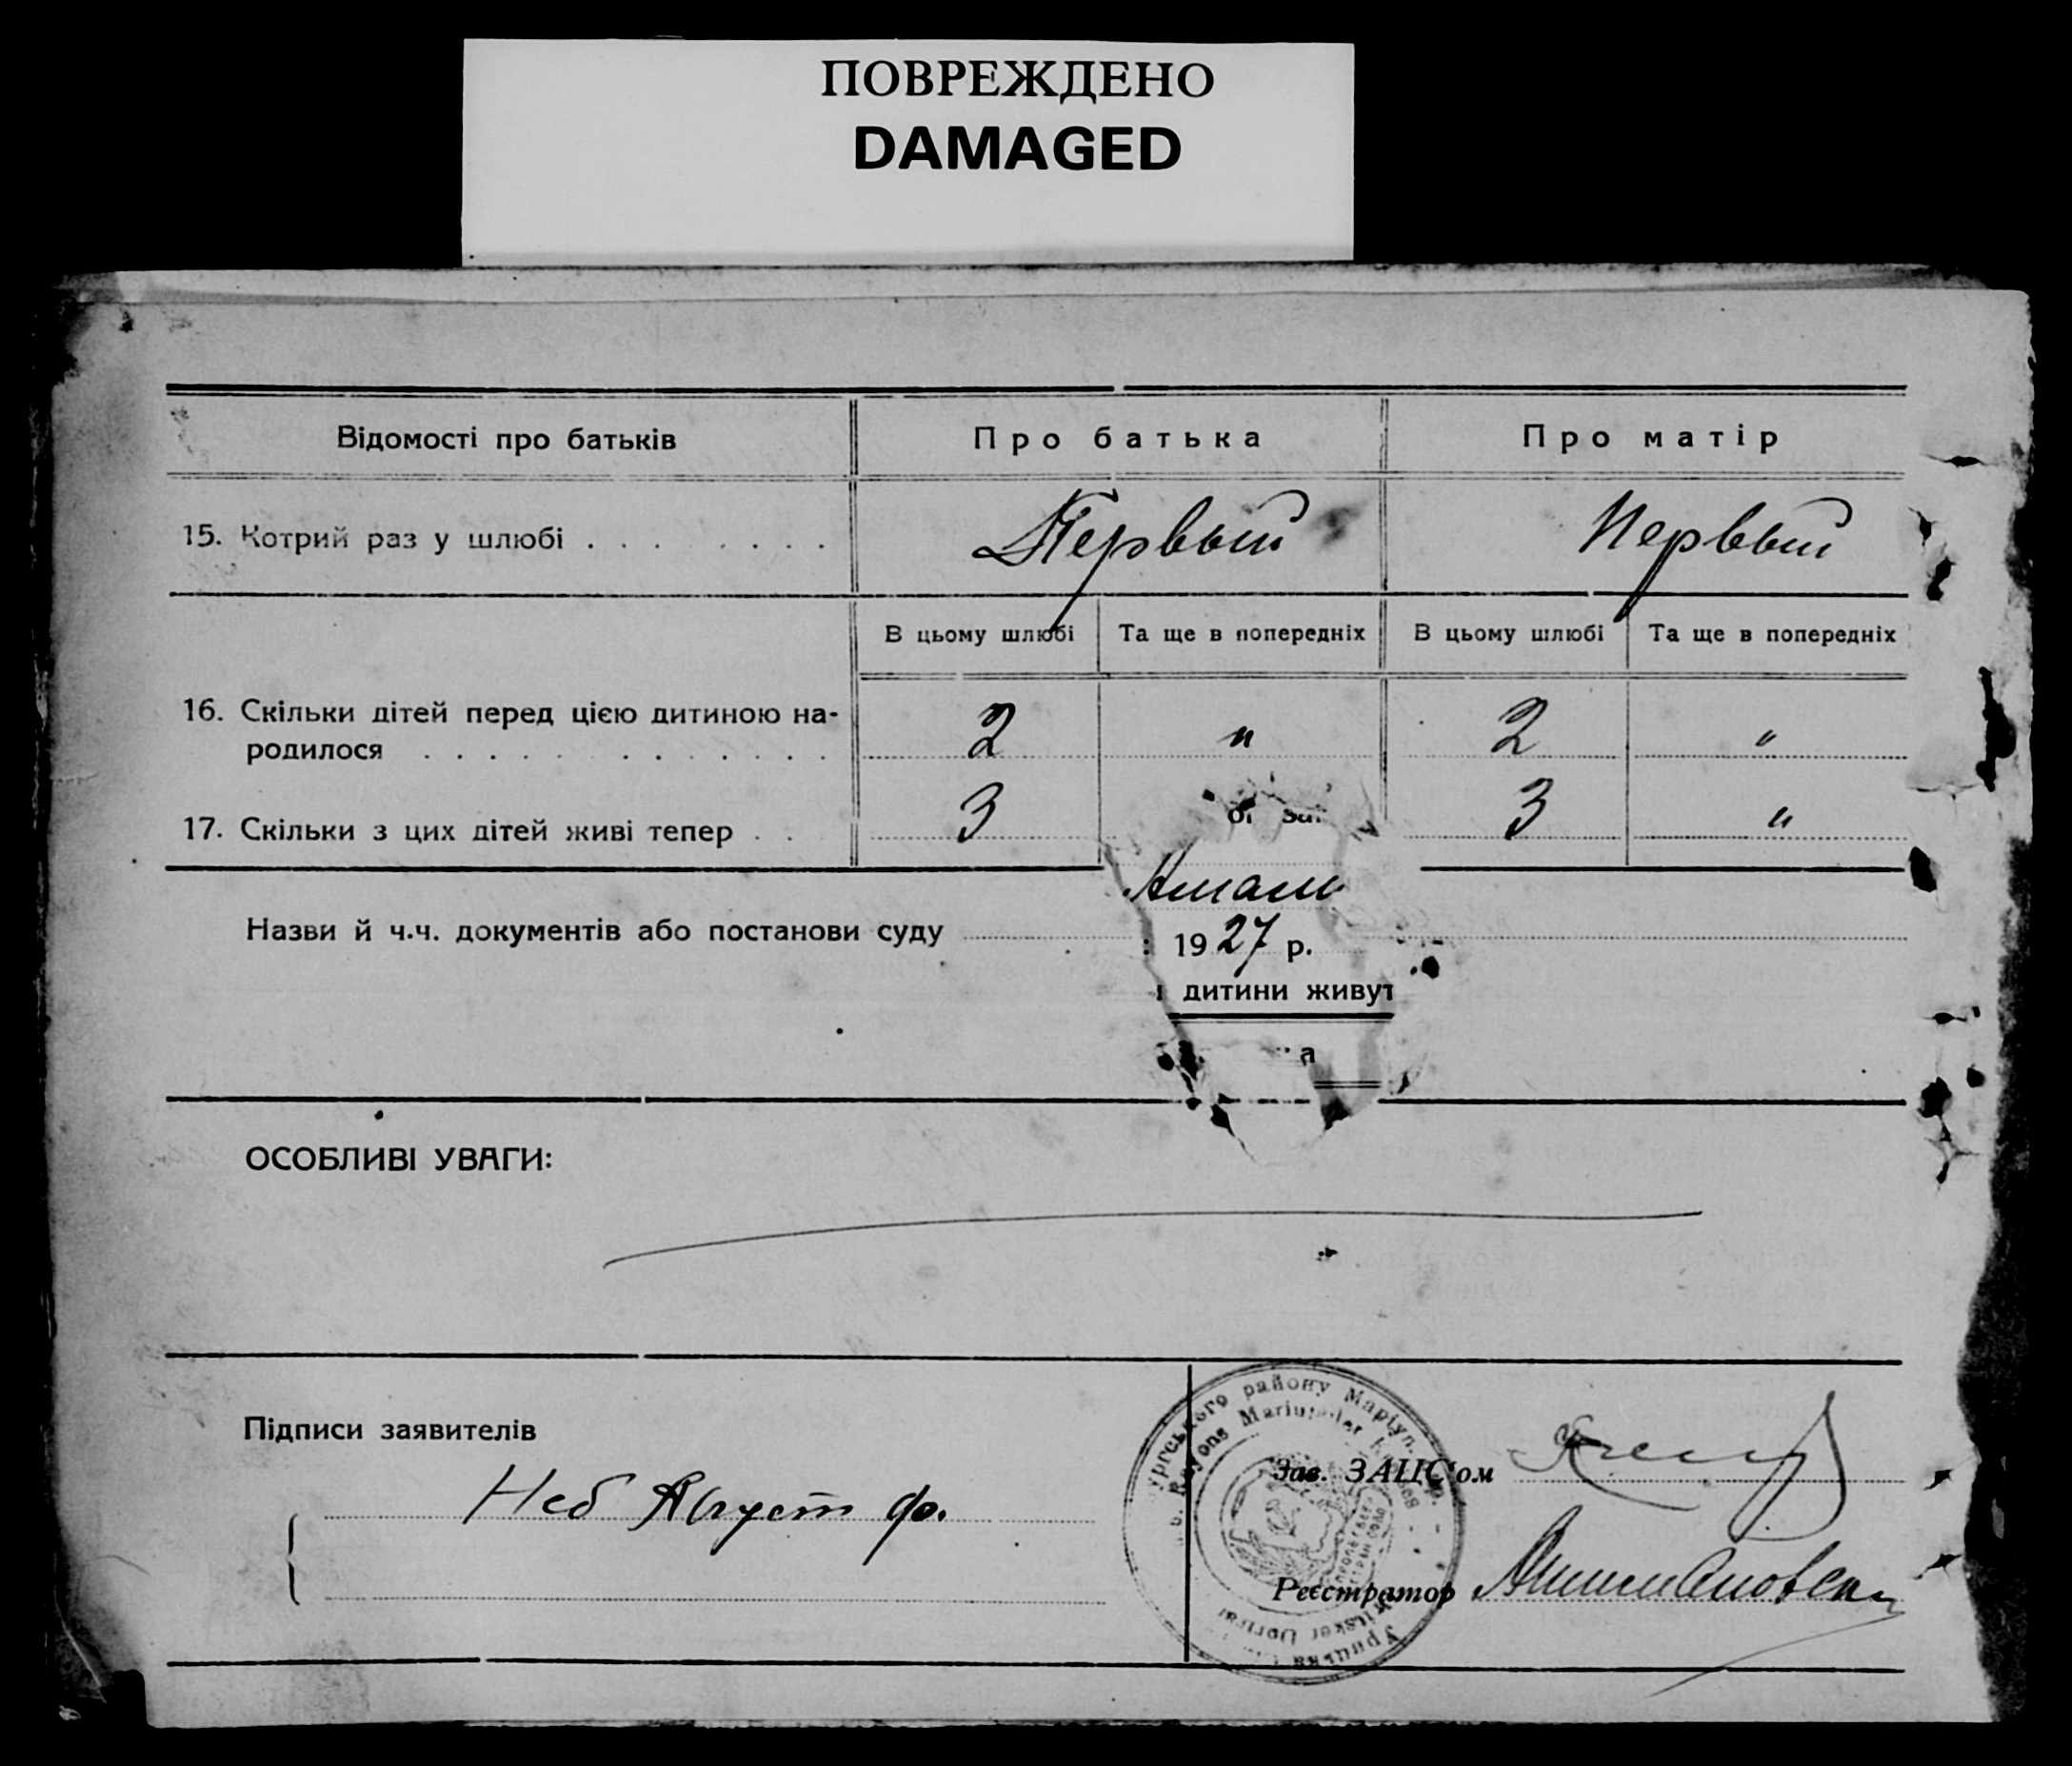 ПОВРЕЖДЕНО
DAMAGED
Відомості про батьків
Про батька
Про матір
15. Котрий раз у шлюбі . . . . . . . .
Первый
Первый
В цьому шлюбі
Та ще в попередніх
В цьому шлюбі
Та ще в попередніх
16. Скільки дітей перед цією дитиною на-
родилося . . . . . . . . . . . . .
2
"
2
"
17. Скільки з цих дітей живі тепер . .
3
3
"
Назви й ч.ч. документів або постанови суду
1927 р.
дитини живут
а
ОСОБЛИВІ УВАГИ:
Підписи заявителів
Неб Август Ф.
району Маріуп.
Rayons Mariupoler Kreises
Зав. ЗАЦС'ом
Реєстратор
Урицька